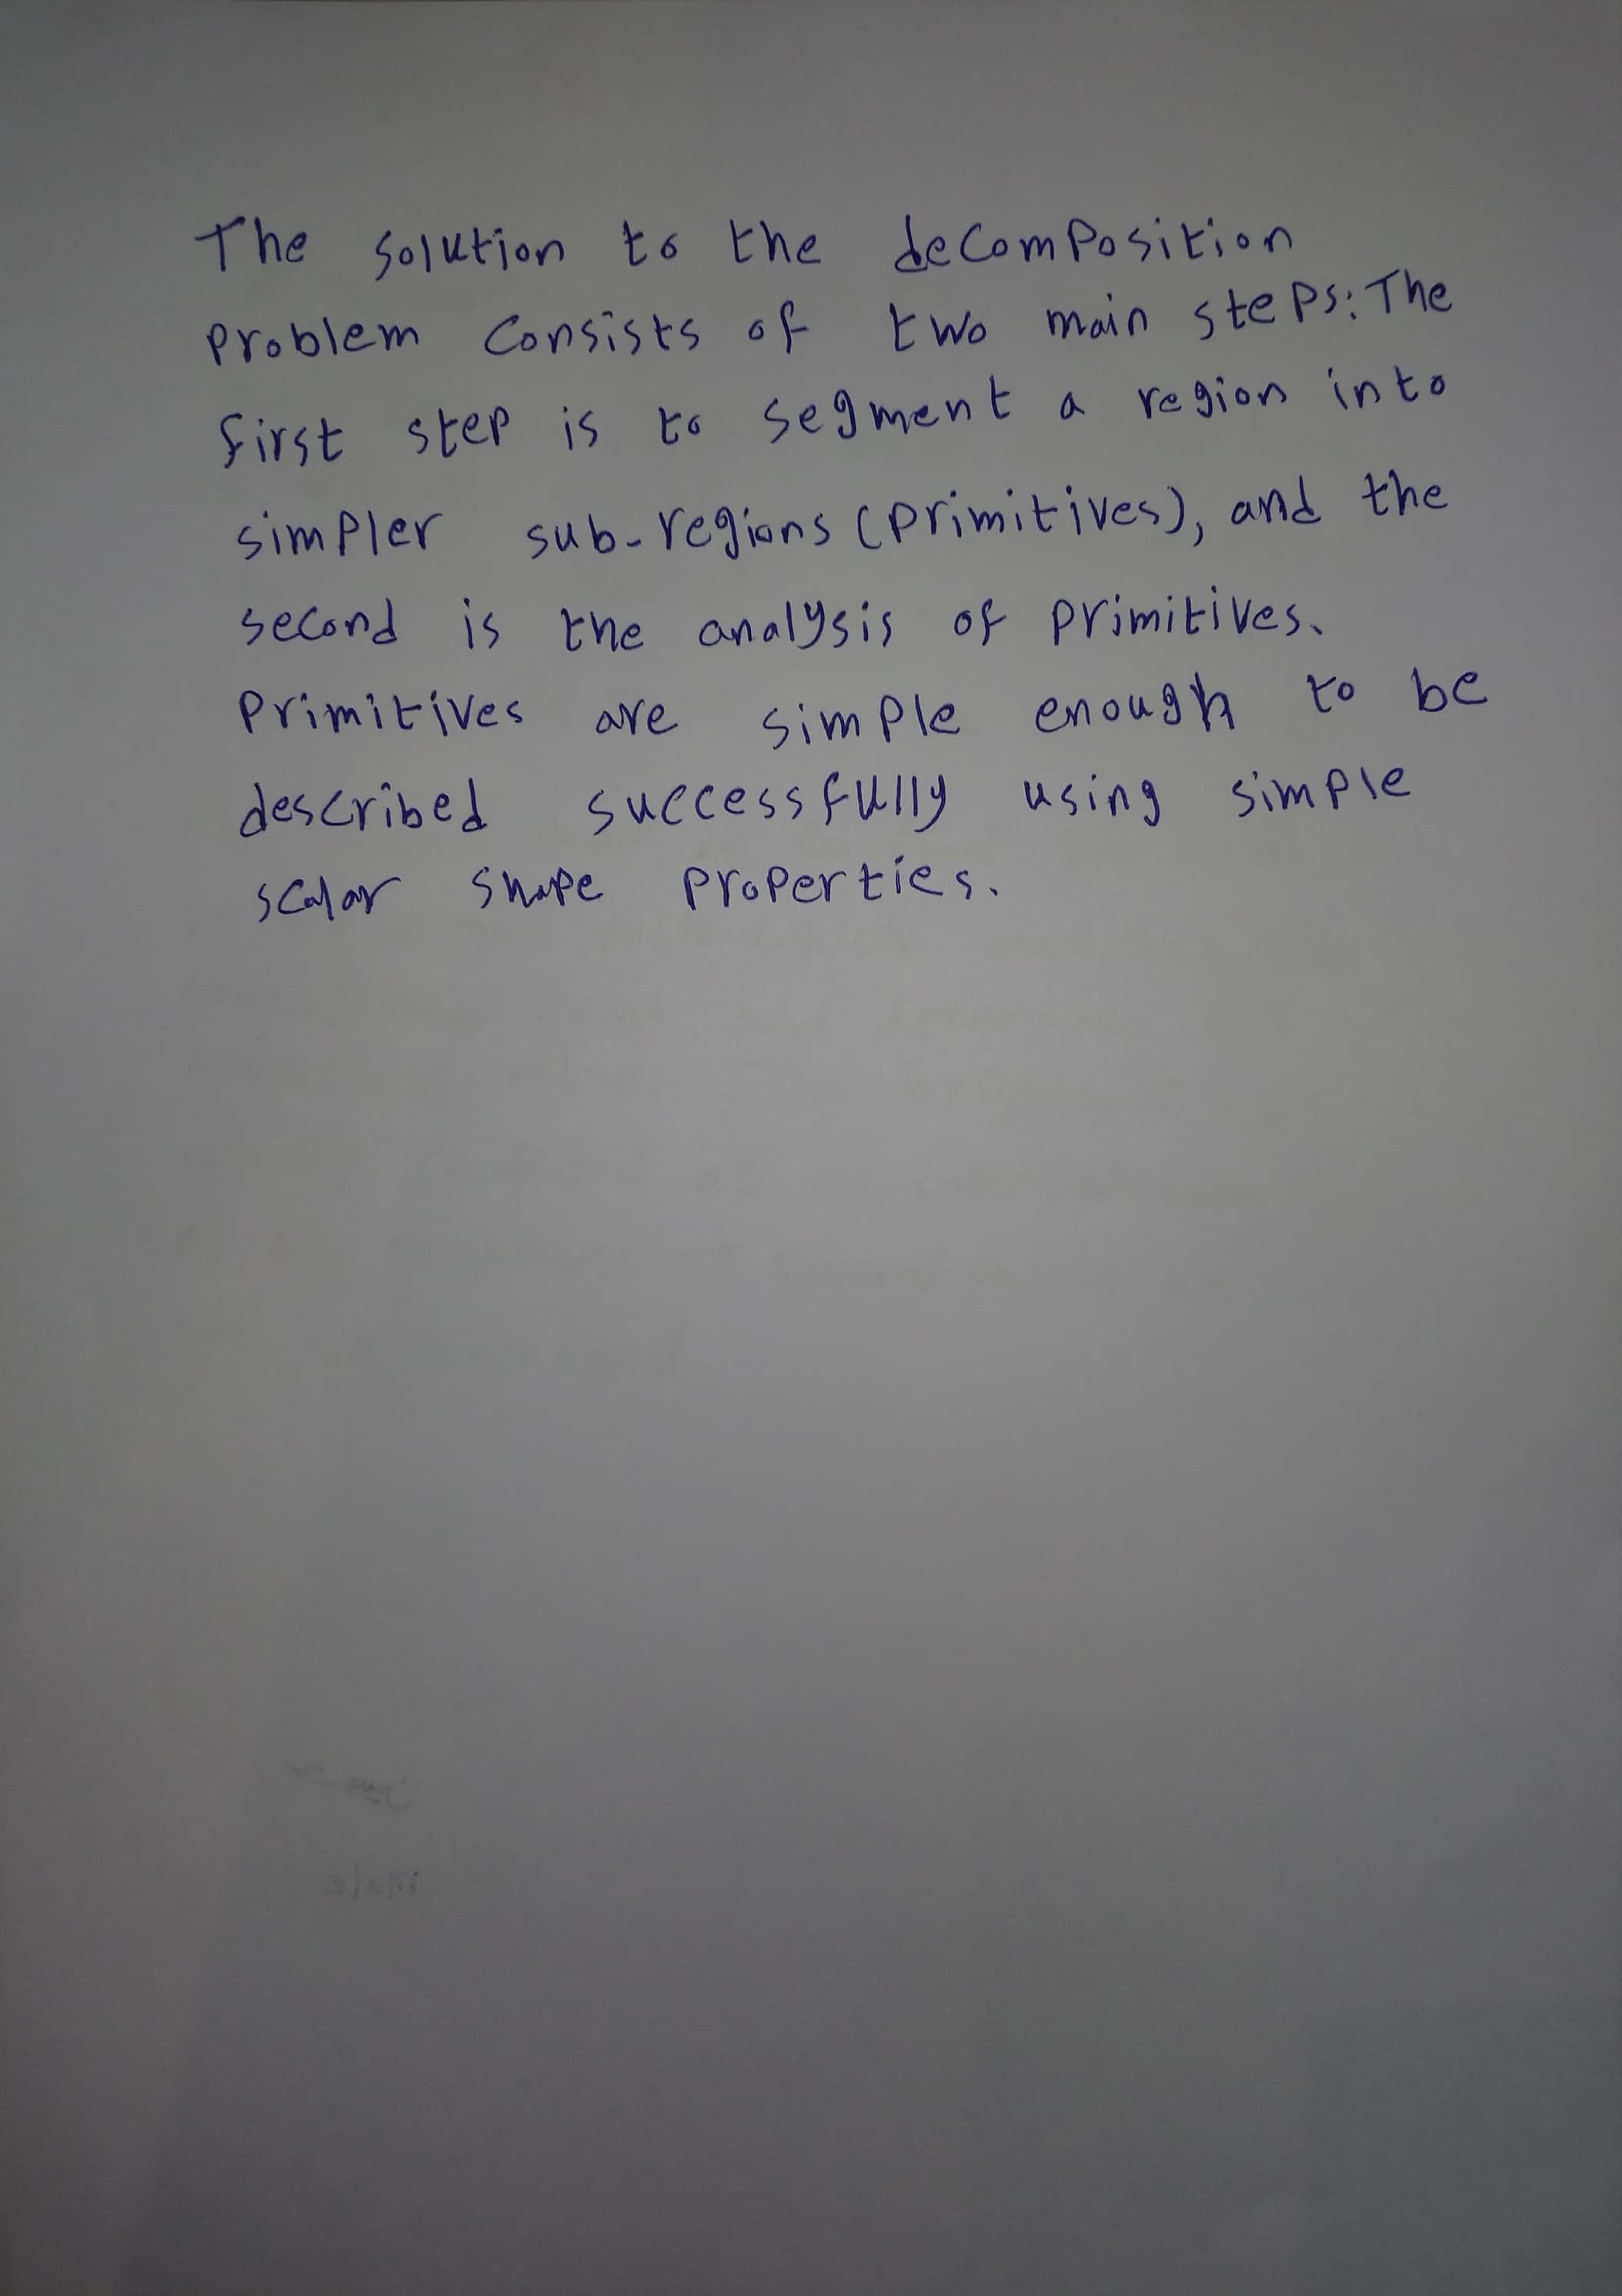 The solution to the decomposition
problem consists of two main steps: The
first step is to segment a region into
simpler sub-regions (primitives), and the
second is the analysis of primitives.
Primitives are simple enough to be
described successfully using simple
scalar shape properties.